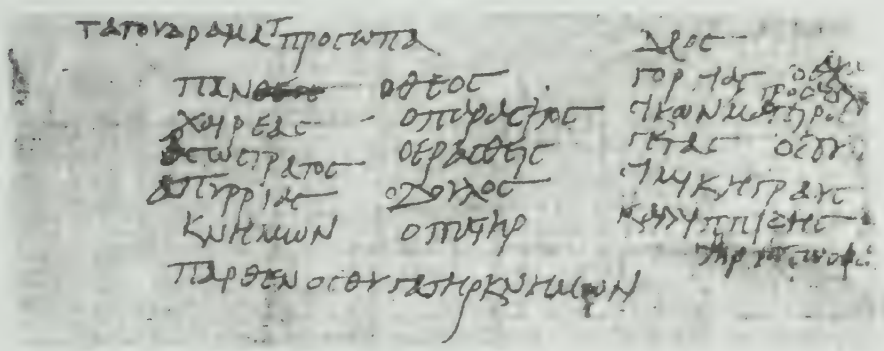 τατουδραματ προσωπα
παν οθεοϲ
χηρεαϲ οπαραϲιτοϲ
ϲωϲτρατοϲ οεραϲθηϲ
πυρριαϲ οδουλοϲ
κνημων οπατηρ
παρθενοϲθυγατηρκνημων
δαοϲ
γοργιαϲ
ϲικων
γεταϲ οδου
ϲιμικηγραυϲ
καλλιππιδηϲ